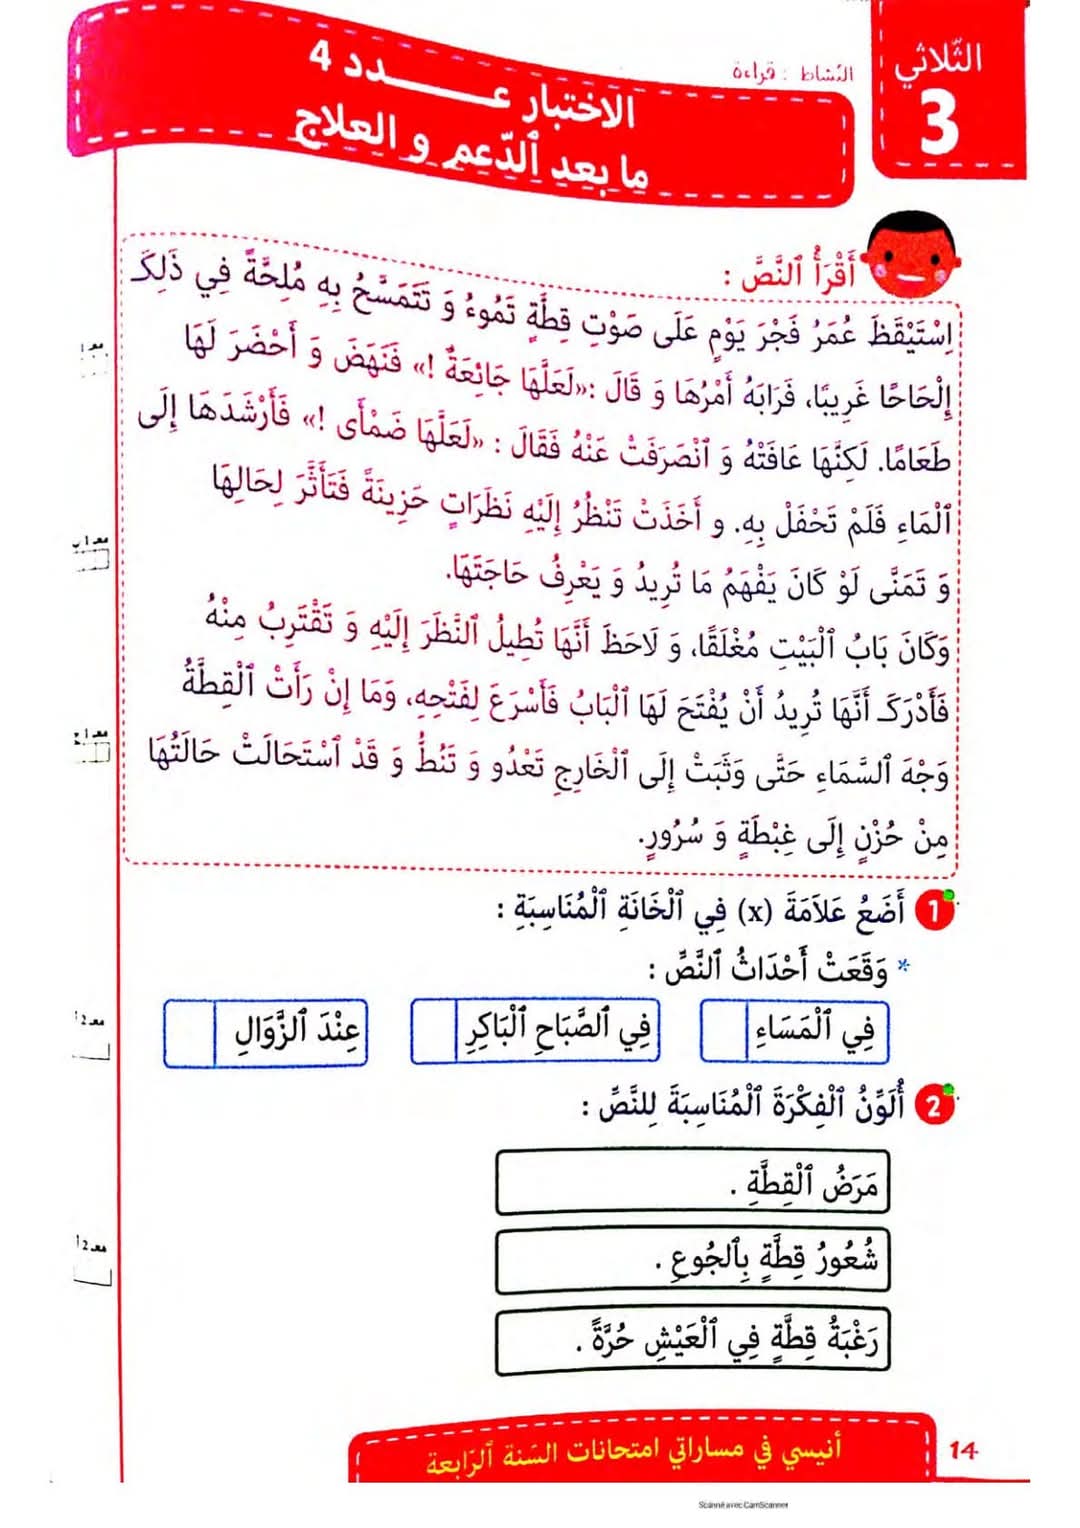 الثّلاثي
3
النّشاط : قراءة
الاختبار عــــدد 4
ما بعد ٱلدّعم و العلاج
أَقْرَأُ ٱلنَّصَّ :
اِسْتَيْقَظَ عُمَرُ فَجْرَ يَوْمٍ عَلَى صَوْتِ قِطَّةٍ تَمُوءُ وَ تَتَمَسَّحُ بِهِ مُلِحَّةً فِي ذَلِكَ
إِلْحَاحًا غَرِيبًا، فَرَابَهُ أَمْرُهَا وَ قَالَ :«لَعَلَّهَا جَائِعَةٌ !» فَنَهَضَ وَ أَحْضَرَ لَهَا
طَعَامًا. لَكِنَّهَا عَافَتْهُ وَ ٱنْصَرَفَتْ عَنْهُ فَقَالَ : «لَعَلَّهَا ضَمْأَى !» فَأَرْشَدَهَا إِلَى
ٱلْمَاءِ فَلَمْ تَحْفَلْ بِهِ. و أَخَذَتْ تَنْظُرُ إِلَيْهِ نَظَرَاتٍ حَزِينَةً فَتَأَثَّرَ لِحَالِهَا
وَ تَمَنَّى لَوْ كَانَ يَفْهَمُ مَا تُرِيدُ وَ يَعْرِفُ حَاجَتَهَا.
وَكَانَ بَابُ ٱلْبَيْتِ مُغْلَقًا، وَ لَاحَظَ أَنَّهَا تُطِيلُ ٱلنَّظَرَ إِلَيْهِ وَ تَقْتَرِبُ مِنْهُ
فَأَدْرَكَ أَنَّهَا تُرِيدُ أَنْ يُفْتَحَ لَهَا ٱلْبَابُ فَأَسْرَعَ لِفَتْحِهِ، وَمَا إِنْ رَأَتْ ٱلْقِطَّةُ
وَجْهَ ٱلسَّمَاءِ حَتَّى وَثَبَتْ إِلَى ٱلْخَارِجِ تَعْدُو وَ تَنُطُّ وَ قَدْ ٱسْتَحَالَتْ حَالَتُهَا
مِنْ حُزْنٍ إِلَى غِبْطَةٍ وَ سُرُورٍ.
1 أَضَعُ عَلاَمَةَ (x) فِي ٱلْخَانَةِ ٱلْمُنَاسِبَةِ :
* وَقَعَتْ أَحْدَاثُ ٱلنَّصِّ :
فِي ٱلْمَسَاءِ فِي ٱلصَّبَاحِ ٱلْبَاكِرِ عِنْدَ ٱلزَّوَالِ
2 أُلَوِّنُ ٱلْفِكْرَةَ ٱلْمُنَاسِبَةَ لِلنَّصِّ :
مَرَضُ ٱلْقِطَّةِ .
شُعُورُ قِطَّةٍ بِٱلجُوعِ .
رَغْبَةُ قِطَّةٍ فِي ٱلْعَيْشِ حُرَّةً .
مع 1
مع 1 ب
مع 1 ج
مع 2 أ
مع 2 أ
أنيسي في مساراتي امتحانات السّنة ٱلرّابعة
14
Scanné avec CamScanner